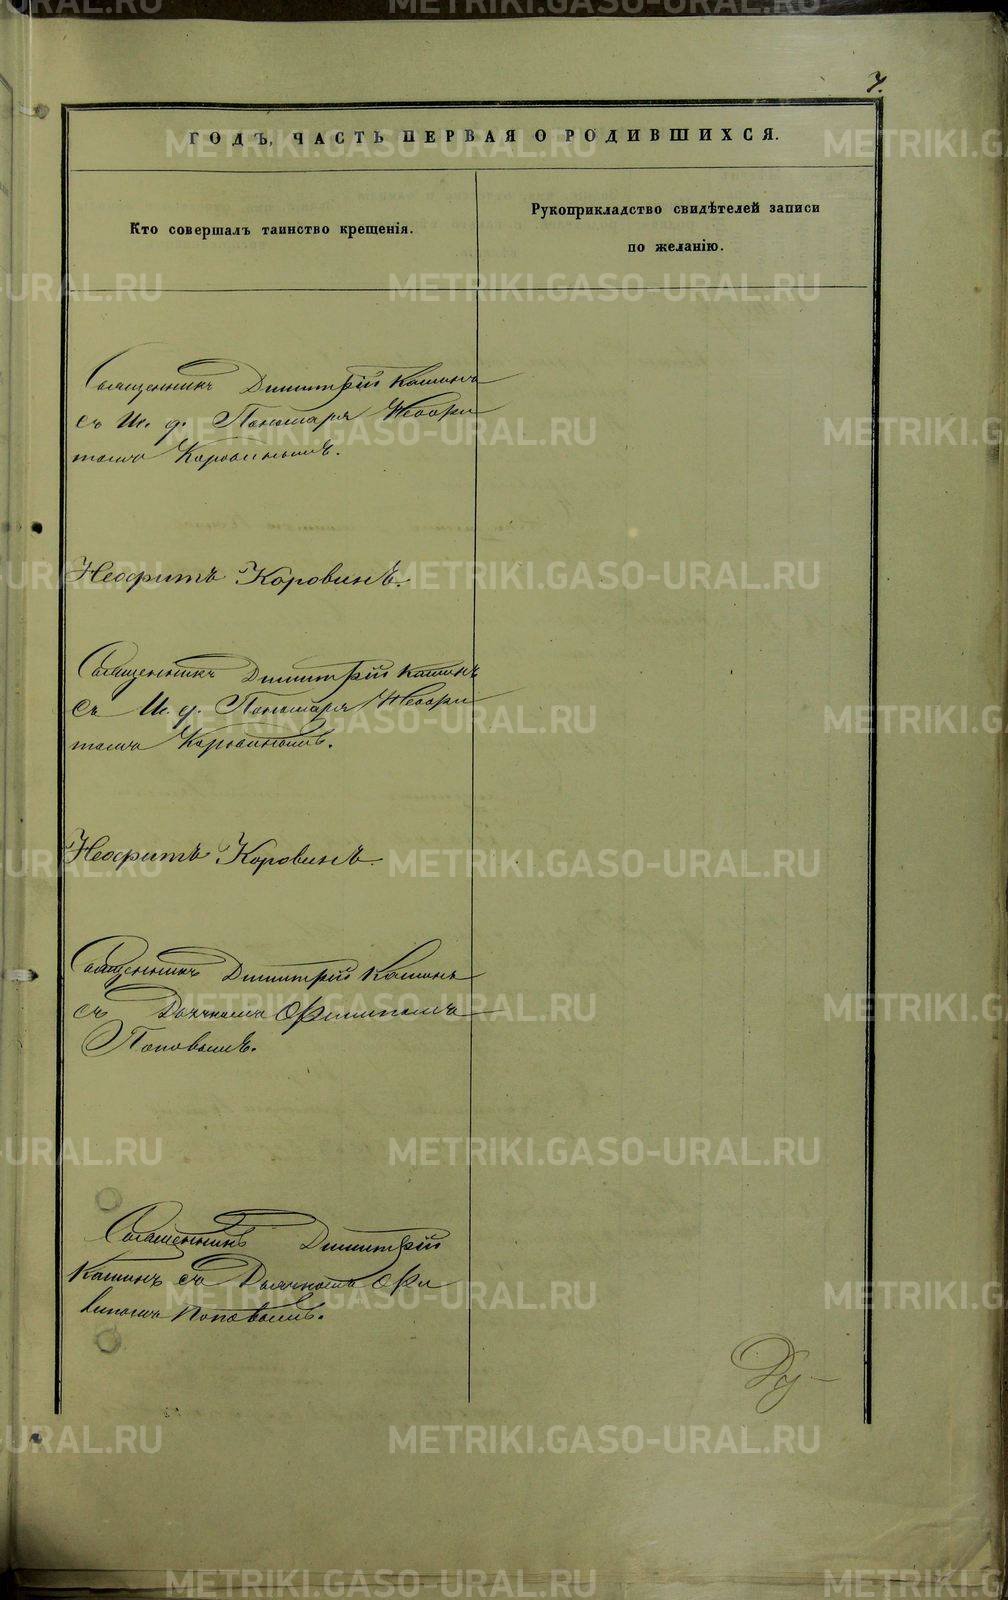 7.
ГОДЪ, ЧАСТЬ ПЕРВАЯ О РОДИВШИХСЯ.
Кто совершалъ таинство крещенія.
Рукоприкладство свидѣтелей записи
по желанію.
Священникъ Димитрій Кашинъ
съ И. д. Пономаря Неофи
томъ Коровинымъ.
Неофитъ Коровинъ.
Священникъ Димитрій Кашинъ
съ И. д. Пономаря Неофи
томъ Коровинымъ.
Неофитъ Коровинъ.
Священникъ Димитрій Кашинъ
съ Дьячкомъ Филипомъ
Поповымъ.
Священникъ Димитрій
Кашинъ съ Дьячкомъ Фи
липомъ Поповымъ.
Ду-
METRIKI.GASO-URAL.RU